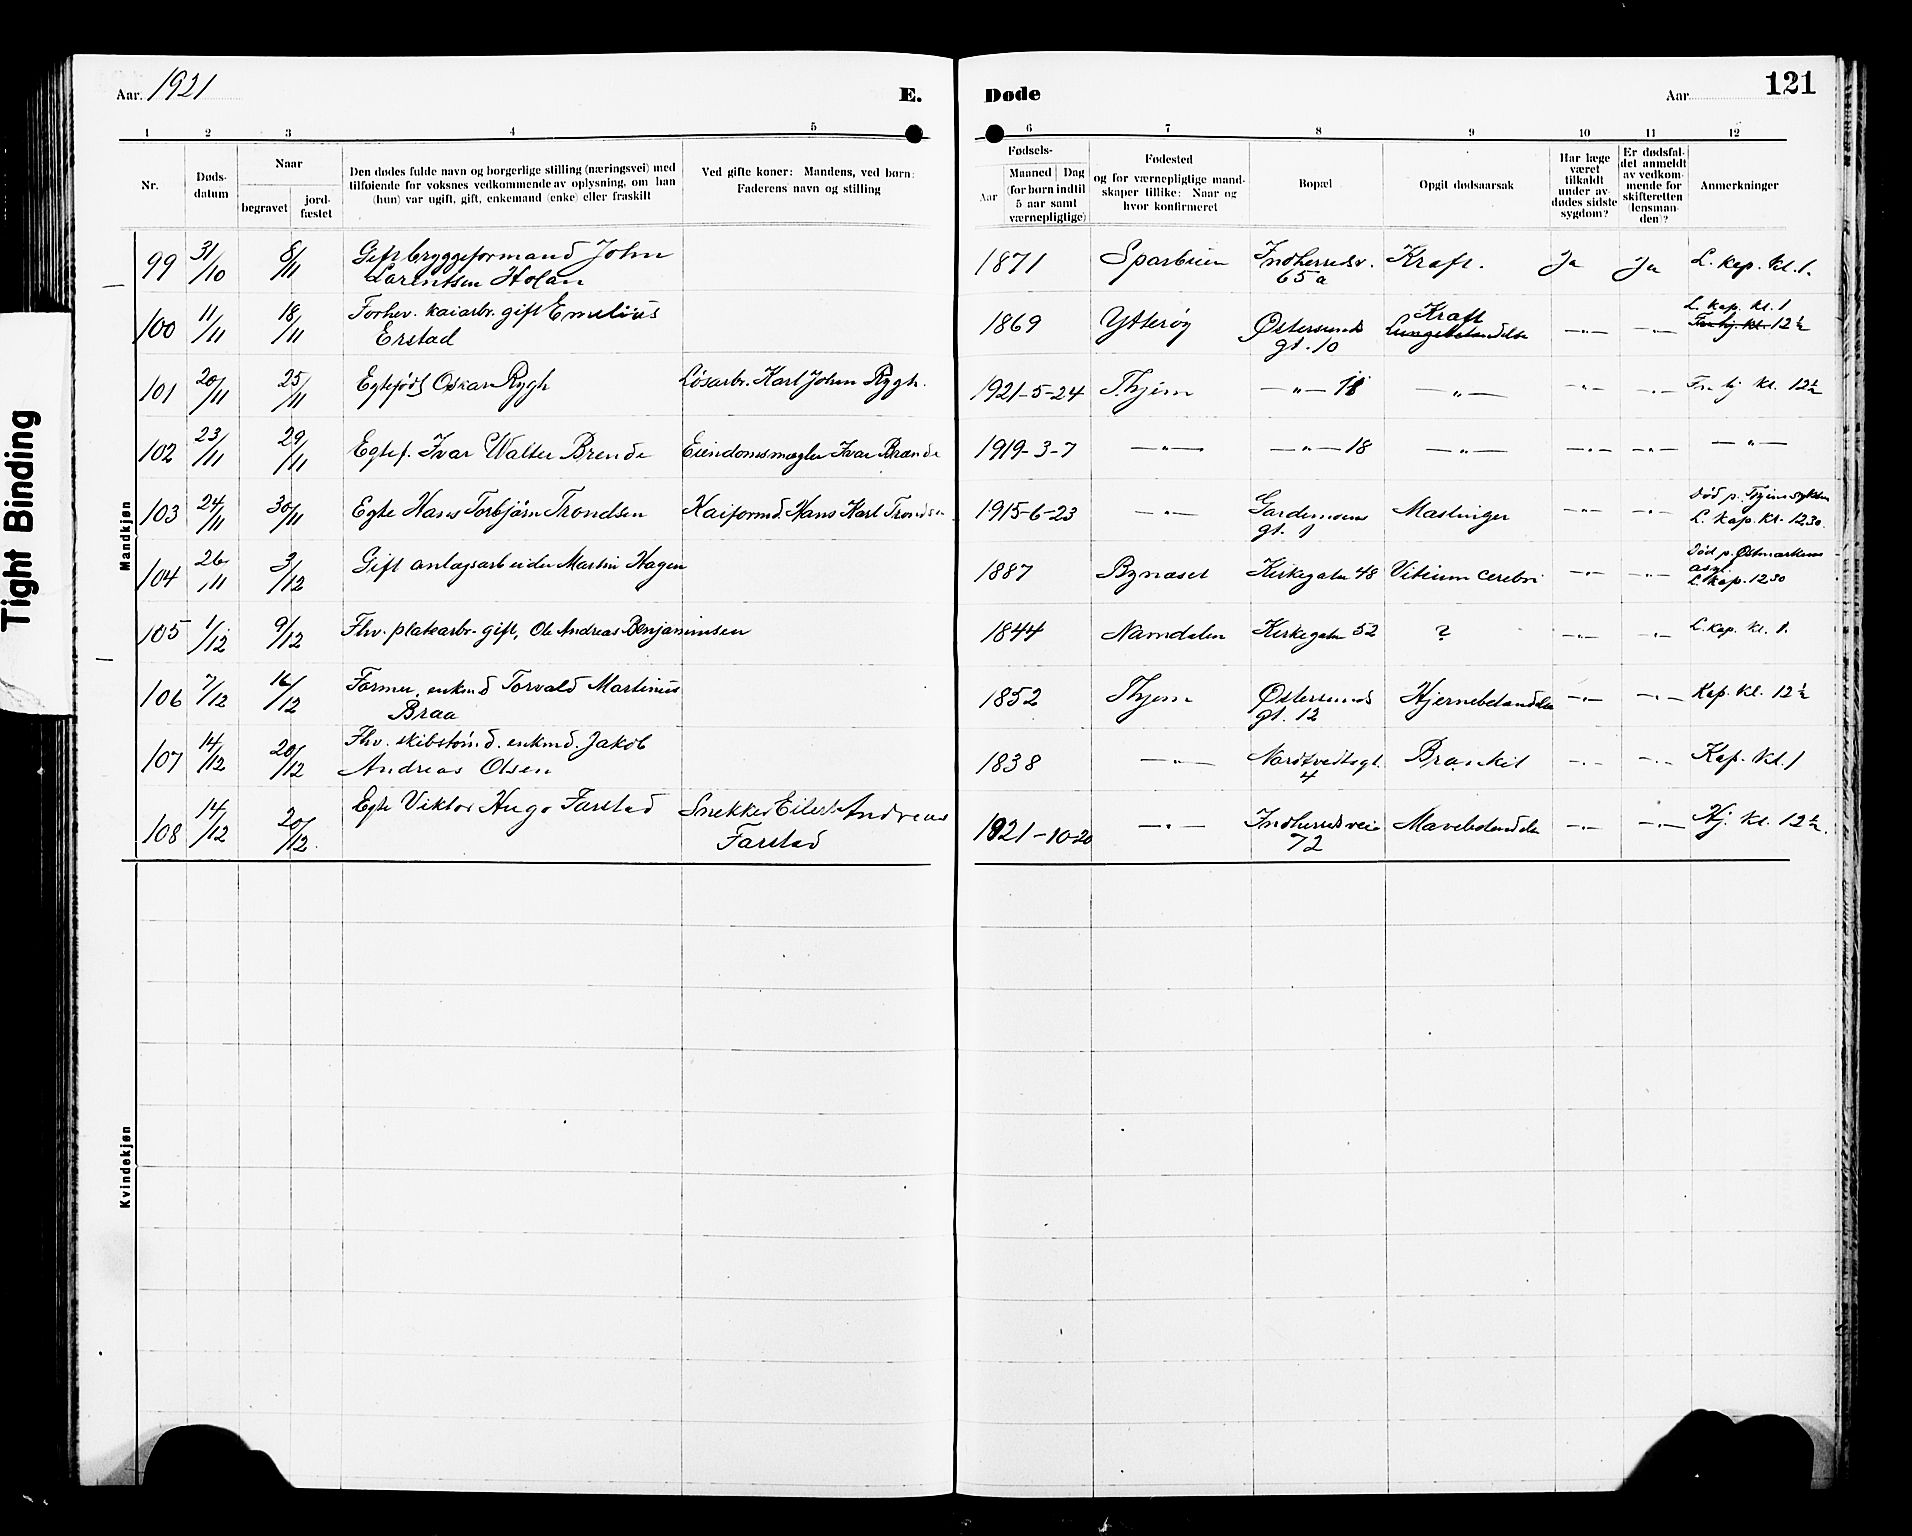 Tight Binding
Aar. 1921
E. Døde
Aar
121
1 2 3 4 5 6 7 8 9 10 11 12
Nr.
Døds-
datum
Naar
begravet
jord-
fæstet
Den dødes fulde navn og borgerlige stilling (næringsvei) med
tilføiende for voksnes vedkommende av oplysning, om han
(hun) var ugift, gift, enkemand (enke) eller fraskilt
Ved gifte koner: Mandens, ved børn:
Faderens navn og stilling
Fødsels-
Aar
Maaned Dag
(for børn indtil
5 aar samt
værnepligtige)
Fødested
og for værnepligtige mand-
skaper tillike: Naar og
hvor konfirmeret
Bopæl
Opgit dødsaarsak
Har læge
været
tilkaldt
under av-
dødes sidste
sygdom?
Er dødsfal-
det anmeldt
av vedkom-
mende for
skifteretten
(lensman-
den)?
Anmerkninger
Mandkjøn
99 31/10 8/11 Gift bryggeformand John
Lorentsen Holan
1871 Sparbuen Indherredsv.
65a
Kraft. Ja Ja L. kap. kl. 1.
100 11/11 18/11 Forhv. kaiarbr. gift Emelius
Erstad
1869 Ytterøy Østersunds
gt. 10
Kraft
Lungebetændelse
—„— —„— L. kap. kl. 1
12½
101 20/11 25/11 Egtefødt Oskar Rygh Løsarbr. Karl Johan Rygh. 1921-5-24 Thjem —„— 18 —„— —„— —„— Fr. hj kl. 12½
102 23/11 29/11 Egtef. Ivar Walter Brende Eiendomsmægler Ivar Brænde 1919-3-7 —„— —„— 18 —„— —„— —„— —„—
103 24/11 30/11 Egte Hans Torbjørn Trondsen Kaiformd. Hans Karl Trondsen 1915-6-23 —„— Gardemoens
gt. 1
Mæslinger —„— —„— Død p. Thjems sykehus
L. kap. kl. 12 30.
104 26/11 3/12 Gift anlægsarbeider Martin Hagen 1887 Bynæset Kirkegaten 48 Vitium cerebri —„— —„— Død p. Østmarkens
asyl.
L. kap. 12 30
105 1/12 9/12 Fhv. platearbr. gift, Ole Andreas Benjaminsen 1844 Namdalen Kirkegaten 52 ? —„— —„— L. kap. kl. 1.
106 7/12 16/12 Former, enkmd Torvald Martinus
Braa
1852 Thjem Østersunds
gt. 12
Hjernebetændelse —„— —„— Kap. kl. 12½
107 14/12 20/12 Fhv. skibstømd. enkmd. Jakob
Andreas Olsen
1838 —„— Nardtvedtsgt.
4
Bronkit —„— —„— Kap. kl. 1
108 14/12 20/12 Egte Viktor Hugo Farstad Snekker Eilert Andreas
Farstad
1921-10-20 —„— Indherredsveien
72
Mavebetændelse —„— —„— Hj. kl. 12½.
Kvindekjøn